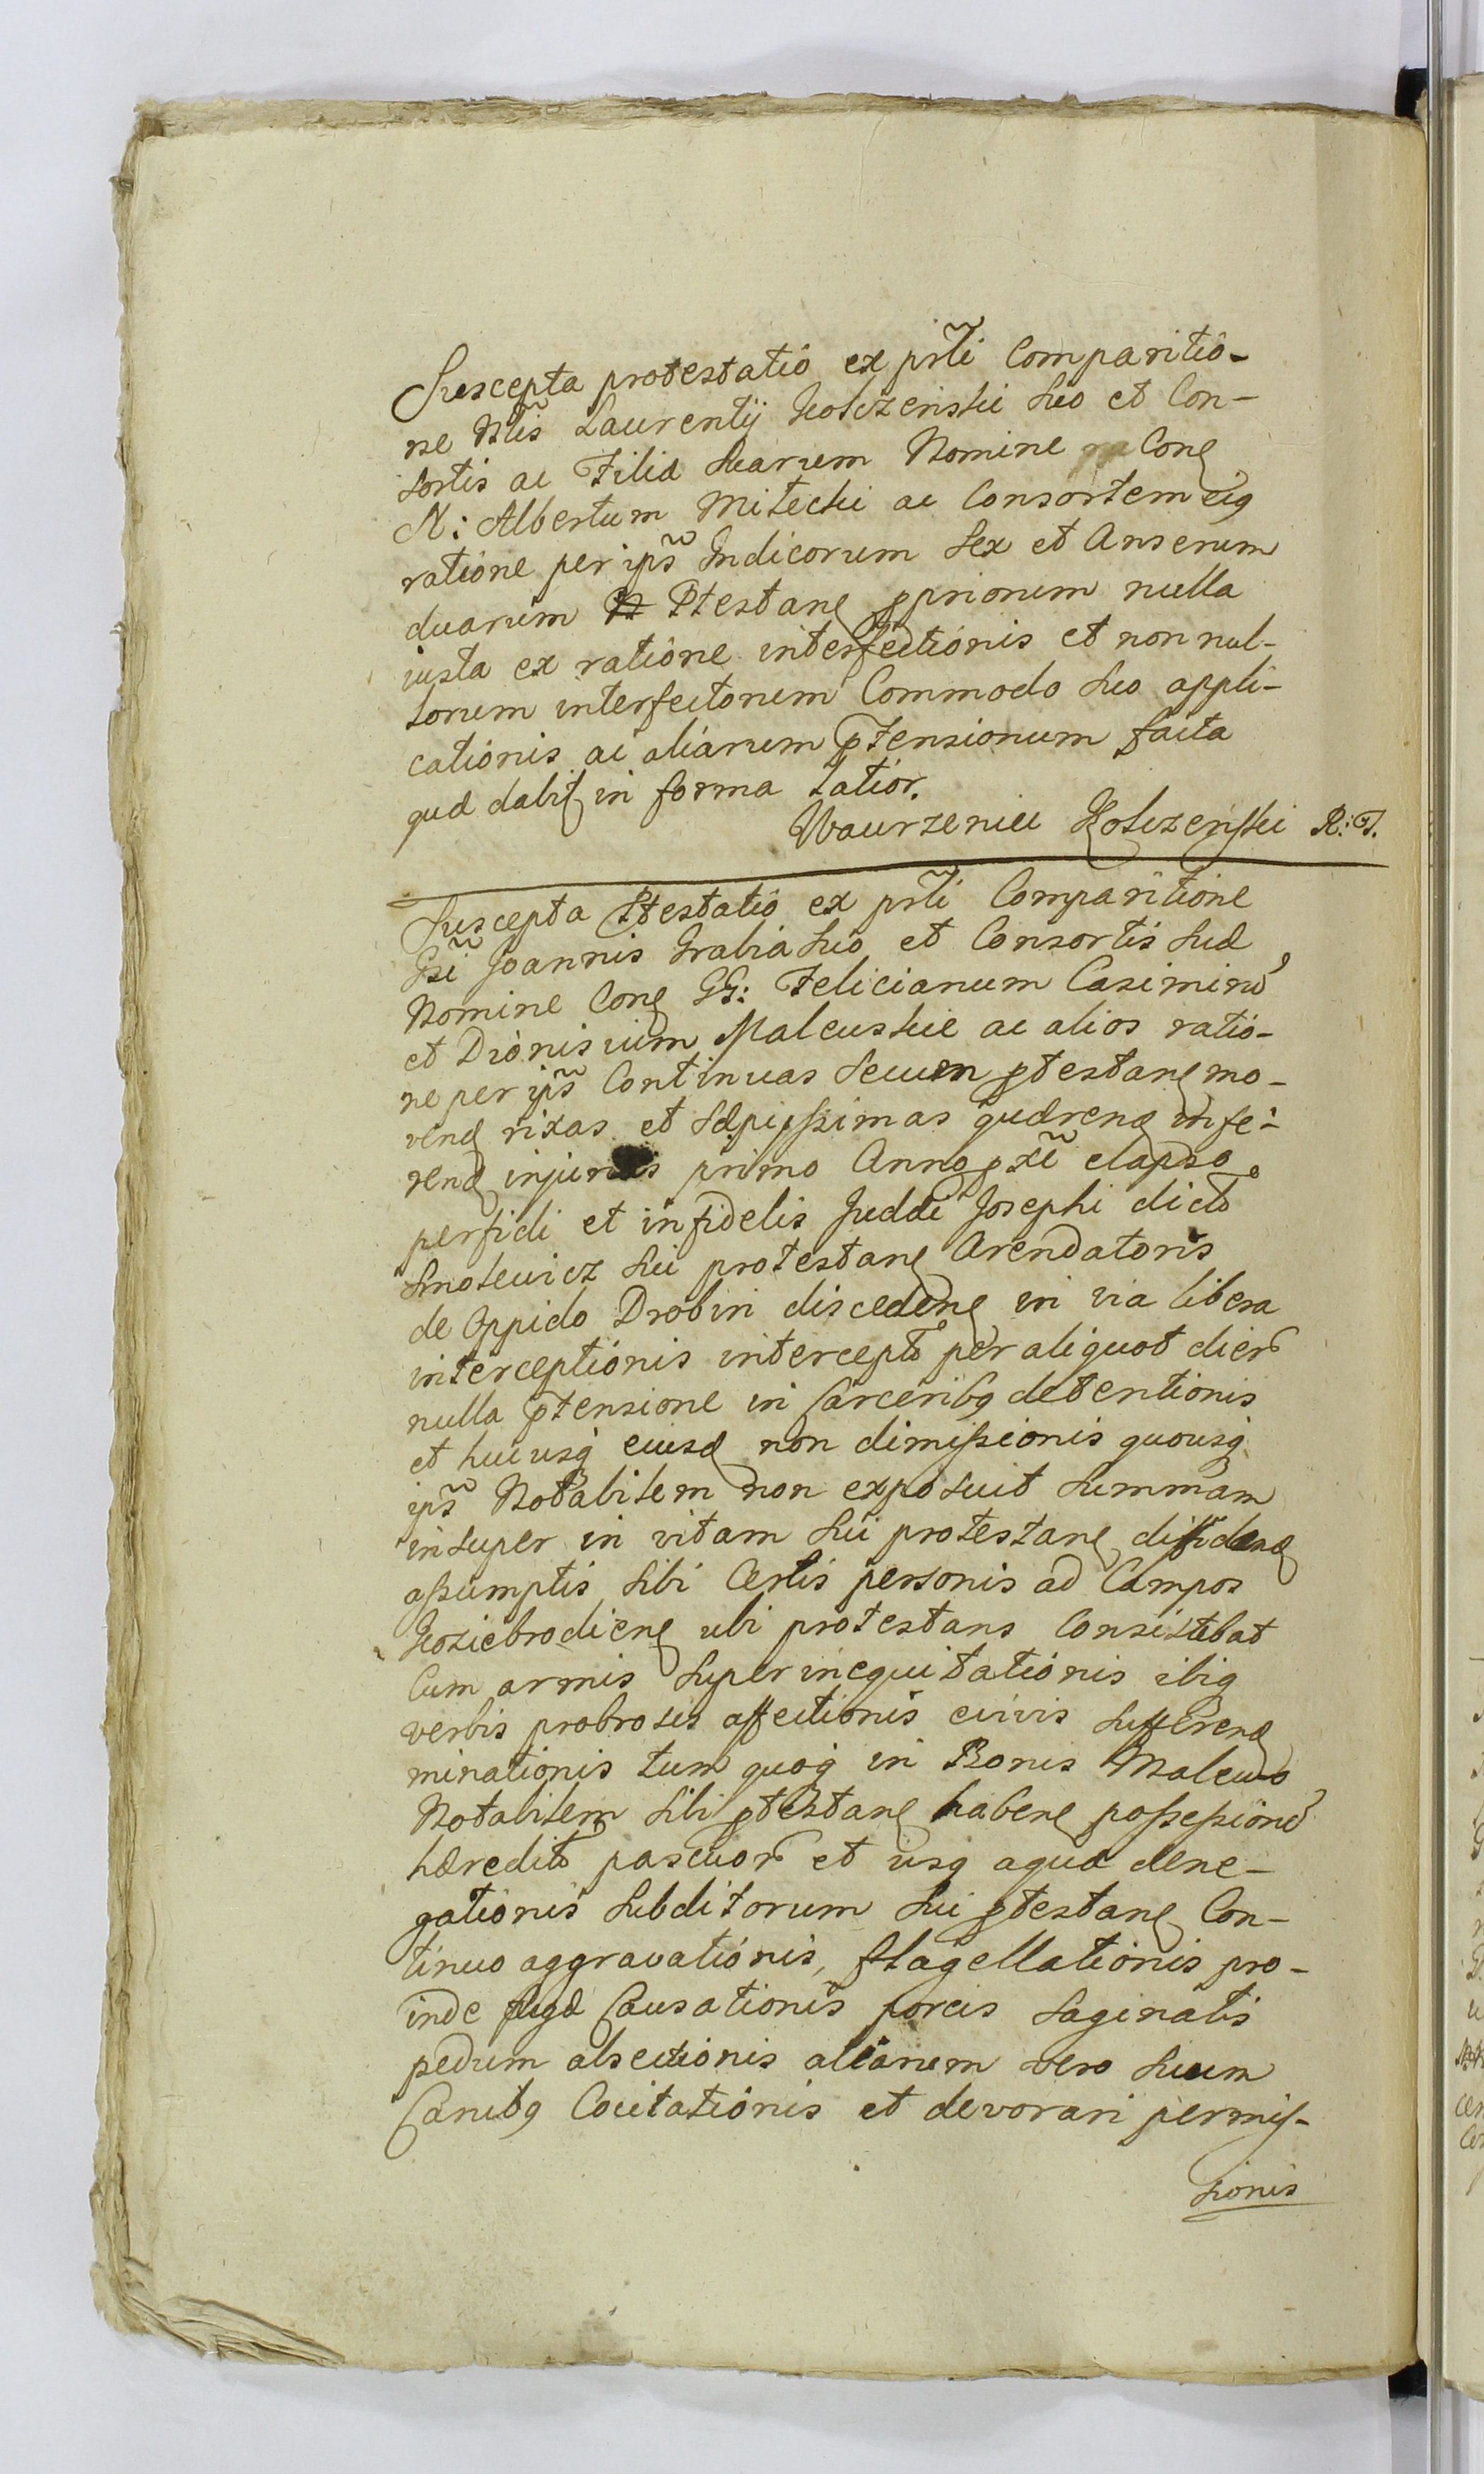 Suscepta protestatio ex prti Comparitio-
ne Nlis Laurentij Kołczenski suo et Con-
sortis ac Filiæ suarum Nomine Conq
N: Albertum Mitecki ac Consortem eiq
ratione per ipś Indicorum sex et Anserum
duarum Ptestanq pprionum nulla
iusta ex ratione interfectionis et non nul-
lorum interfectorum Commodo suo appli-
cationis ac aliarum ptensionum facta
quæ dabit in forma latior.
Wawrzeniec Kołczenski R: T.
Suscepta Ptestatio ex prti Comparitione
Gsi Joannis Grabia suo et Consortis suæ
Nomine Conq GG: Felicianum Casimirū
et Dionisium Maleuskie ac alios ratio-
ne per ipś Continuas secum ptestanq mo-
venq rixas et sæpissimas quærenq infe-
renq injurias primo Anno pxe elapso
perfidi et infidelis Judæi Josephi dicto
Smolewicz sui protestanq Arendatoris
de Oppido Drobin discedenq in via libera
interceptionis intercepto per aliquot dierū
nulla ptensione in Carceribq detentionis
et huiusq eiusd non dimissionis quousq
ipś Notabilem non exposuit summam
insuper in vitam sui protestanq
assumptis sibi Certis personis ad Campos
Koziebrodienq ubi protestans Consistebat
Cum armis superinequitationis ibiq
verbis probrosis affectionis
minationis tum quoq in Bonis Maleuo
Notabilem sibi ptestanq habenq possessionē
hæredit pascuorū et usq aquæ dene-
gationis subditorum sui ptestanq Con-
tinuo aggravationis, flagellationis pro-
inde fugæ Causationis porcis saginatis
pedum absectionis aliarum vero suum
Canibq Concitationis et devorari permis-
sionis